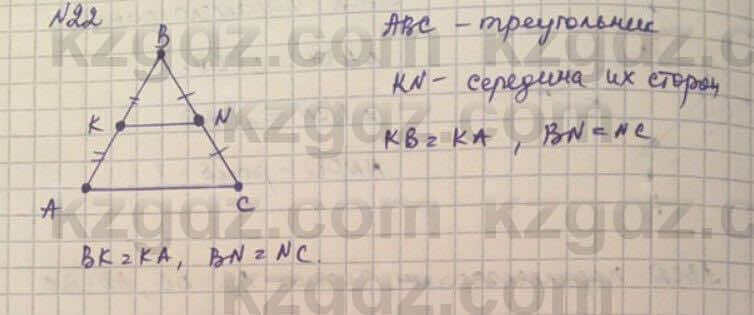 N22
ABC - треугольник
B
KN - середина их сторон
K N
KB = KA , BN = NC
A C
BK = KA, BN = NC.
kzgdz.com
kzgdz.com
kzgdz.com
kzgdz.com